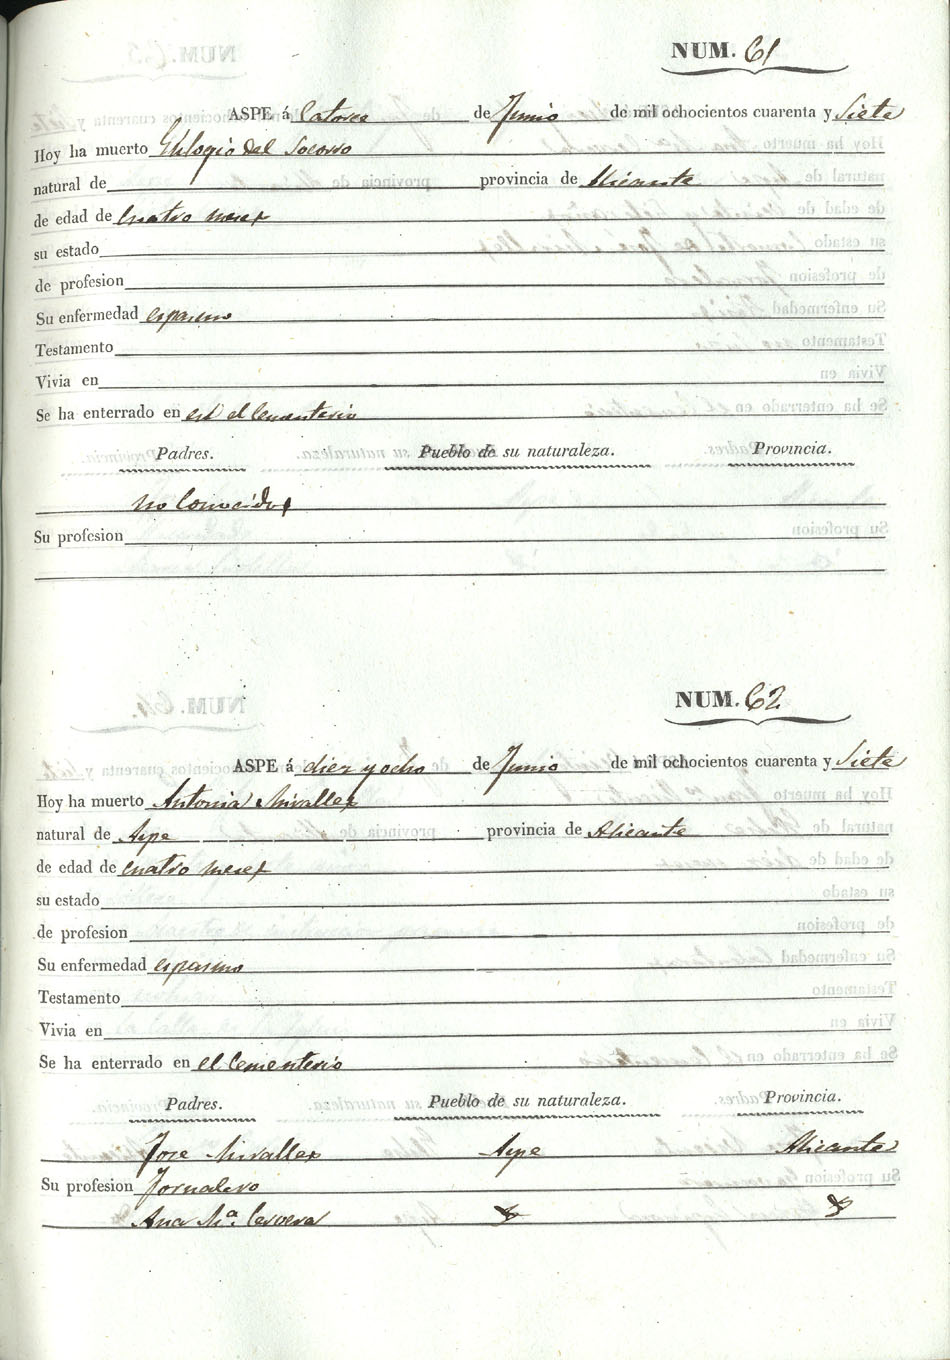 NUM. 61
ASPE á Catorce de Junio de mil ochocientos cuarenta y Siete
Hoy ha muerto Eulogio del Socorro
natural de provincia de Alicante
de edad de Cuatro meses
su estado
de profesion
Su enfermedad espasmo
Testamento
Vivia en
Se ha enterrado en el Cementerio
Padres. Pueblo de su naturaleza. Provincia.
no Conocidos
Su profesion
NUM. 62
ASPE á diez y ocho de Junio de mil ochocientos cuarenta y Siete
Hoy ha muerto Antonia Mirallex
natural de Aspe provincia de Alicante
de edad de cuatro meses
su estado
de profesion
Su enfermedad espasmo
Testamento
Vivia en
Se ha enterrado en el Cementerio
Padres. Pueblo de su naturaleza. Provincia.
Jose Mirallex Aspe Alicante
Su profesion Jornalero
Ana Mª. Cervera